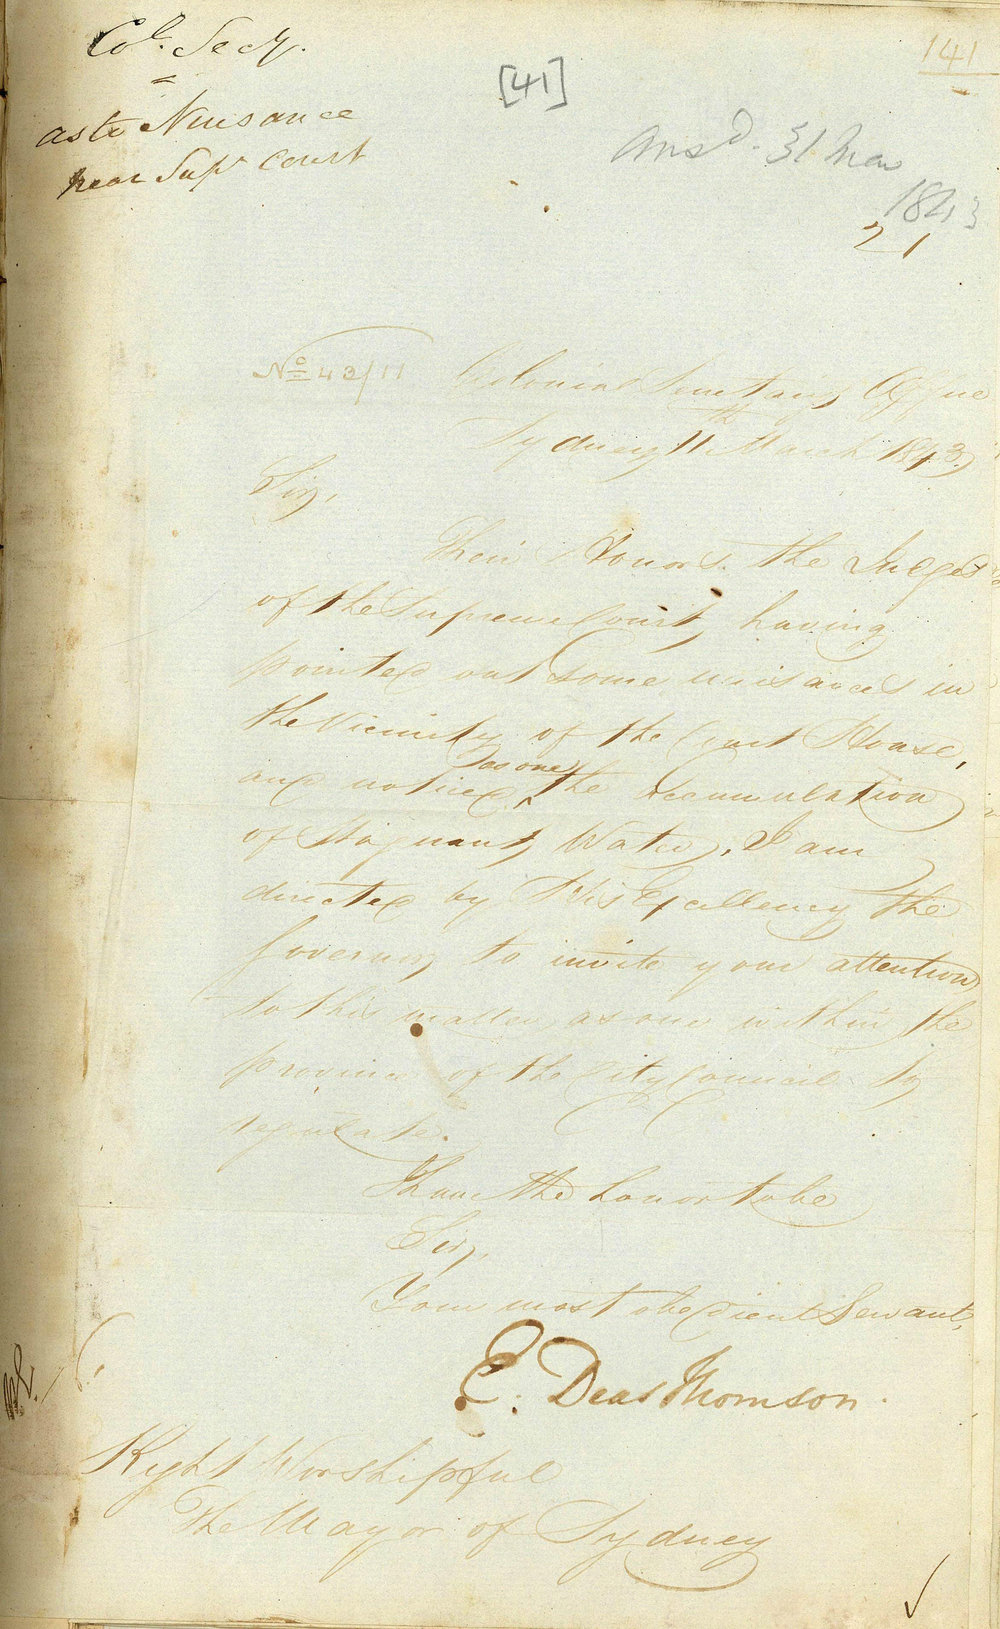 Col. Secy.
as to Nuisance
near Supr Court
[41]
141
Ansd. 31 Mar
1843
21
No 43/11
Colonial Secretary's Office
Sydney 11th March 1843.
Sir,
Their Honors the Judges
of the Supreme Court, having
pointed out some nuisances in
the Vicinity of the Court House,
and noticed as one the accumulation
of Stagnant Water, I am
directed by His Excellency the
Governor, to invite your attention
to this matter, as one within the
province of the City Council to
regulate.
I have the honor to be
Sir,
Your most obedient Servant,
E. Deas Thomson.
Right Worshipful
The Mayor of Sydney